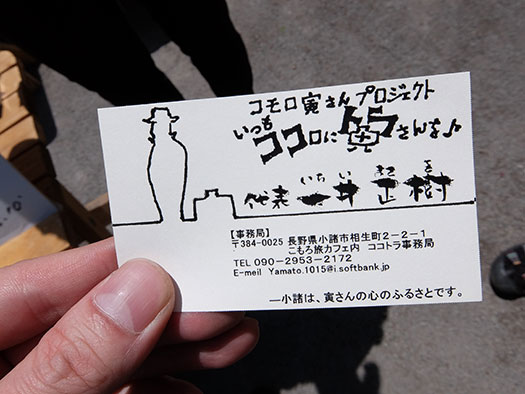 コモロ寅さんプロジェクト
いつもココロに寅さんを♪
代表 一井 正樹
いちい まさ き
【事務局】
〒384-0025 長野県小諸市相生町2-2-1
こもろ旅カフェ内 ココトラ事務局
TEL 090-2953-2172
E-meil Yamato.1015@i.softbank.jp
―小諸は、寅さんの心のふるさとです。